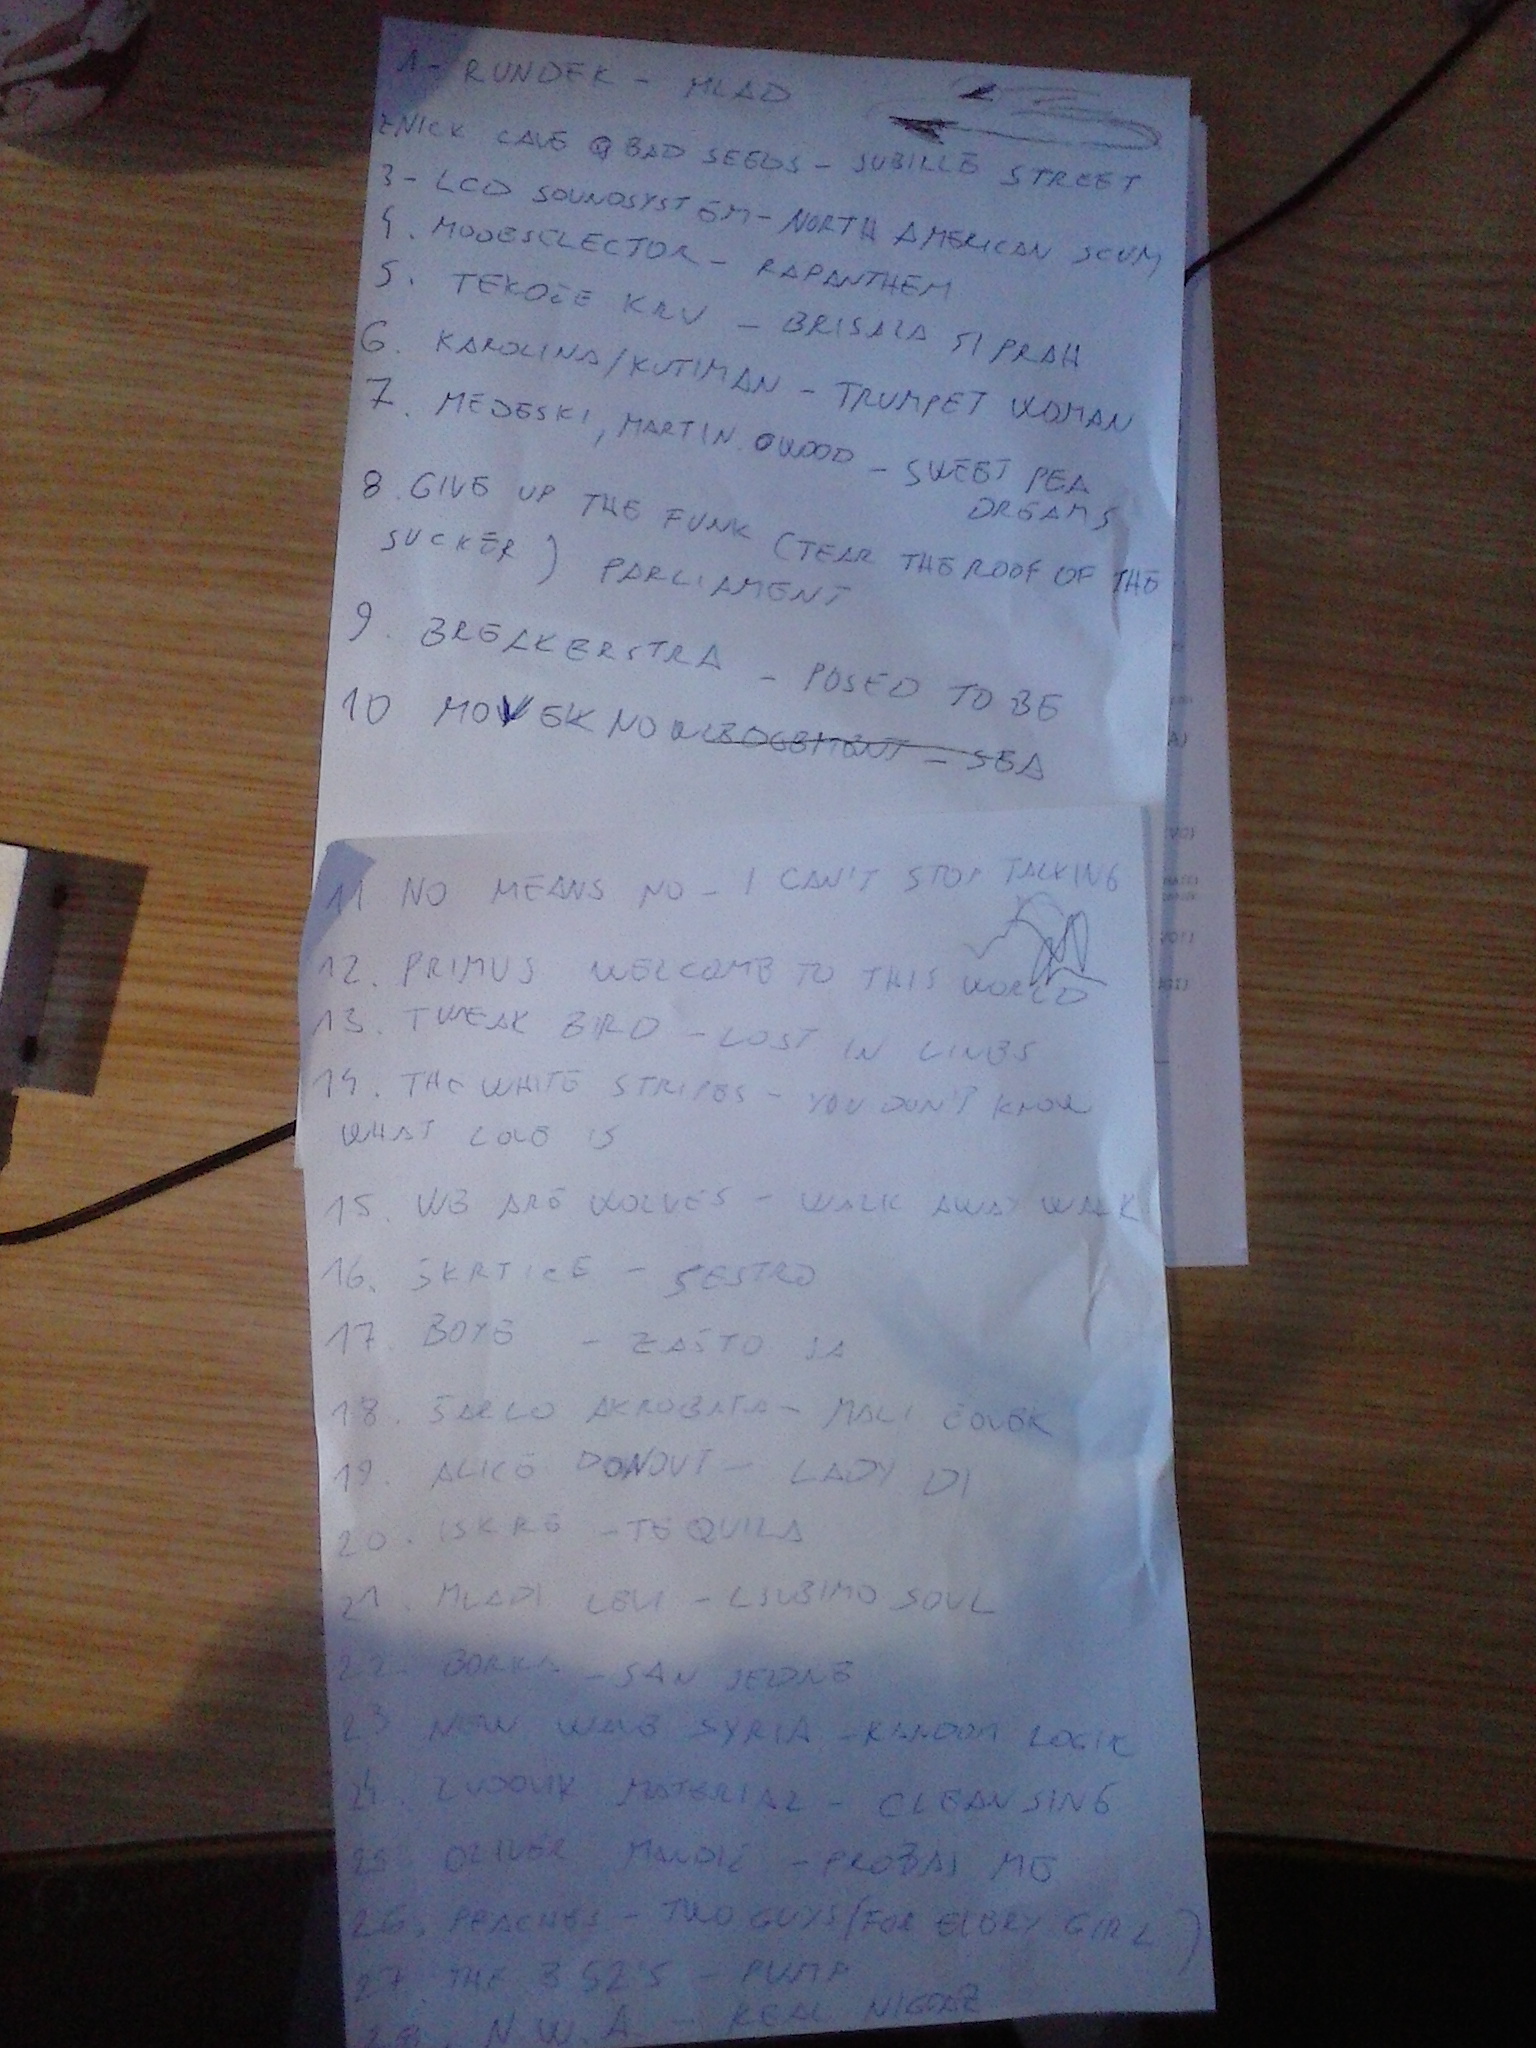 1- RUNDEK - MLAD
2 NICK CAVE & BAD SEEDS - JUBILLE STREET
3- LCD SOUNDSYSTEM - NORTH AMERICAN SCUM
4. MODESELECTOR - RAPANTHEM
5. TEKOČE KRV - BRISALA SI PRAH
6. KAROLINA/KUTIMAN - TRUMPET WOMAN
7. MEDESKI, MARTIN & WOOD - SWEET PEA
DREAMS
8. GIVE UP THE FUNK (TEAR THE ROOF OF THE
SUCKER) PARLIAMENT
9. BREAKERSTRA - POSED TO BE
10 MOVEKNOWLEDGEMENT - SEA
11 NO MEANS NO - I CAN'T STOP TALKING
12. PRIMUS WELCOME TO THIS WORLD
13. TWEAK BIRD - LOST IN LINES
14. THE WHITE STRIPES - YOU DON'T KNOW
WHAT LOVE IS
15. WE ARE WOLVES - WALK AWAY WALK
16. ŠKRTICE - SESTRO
17. BOYE - ZAŠTO JA
18. ŠARLO AKROBATA - MALI ČOVEK
19. ALICE DONOUT - LADY DI
20. ISKRE - TEQUILA
21. MLADI LEVI - LJUBIMO SOUL
22. - SAN JEDNE
23 NEW WAVE SYRIA - RANDOM LOGIC
24 ZVOČNIK MATERIAL - CLEANSING
25 OLIVER MANDIČ - PROBAJ ME
26. PEACHES - TWO GUYS (FOR EVERY GIRL)
27. THE B 52'S - PUMP
28. N.W.A. - REAL NIGGAZ